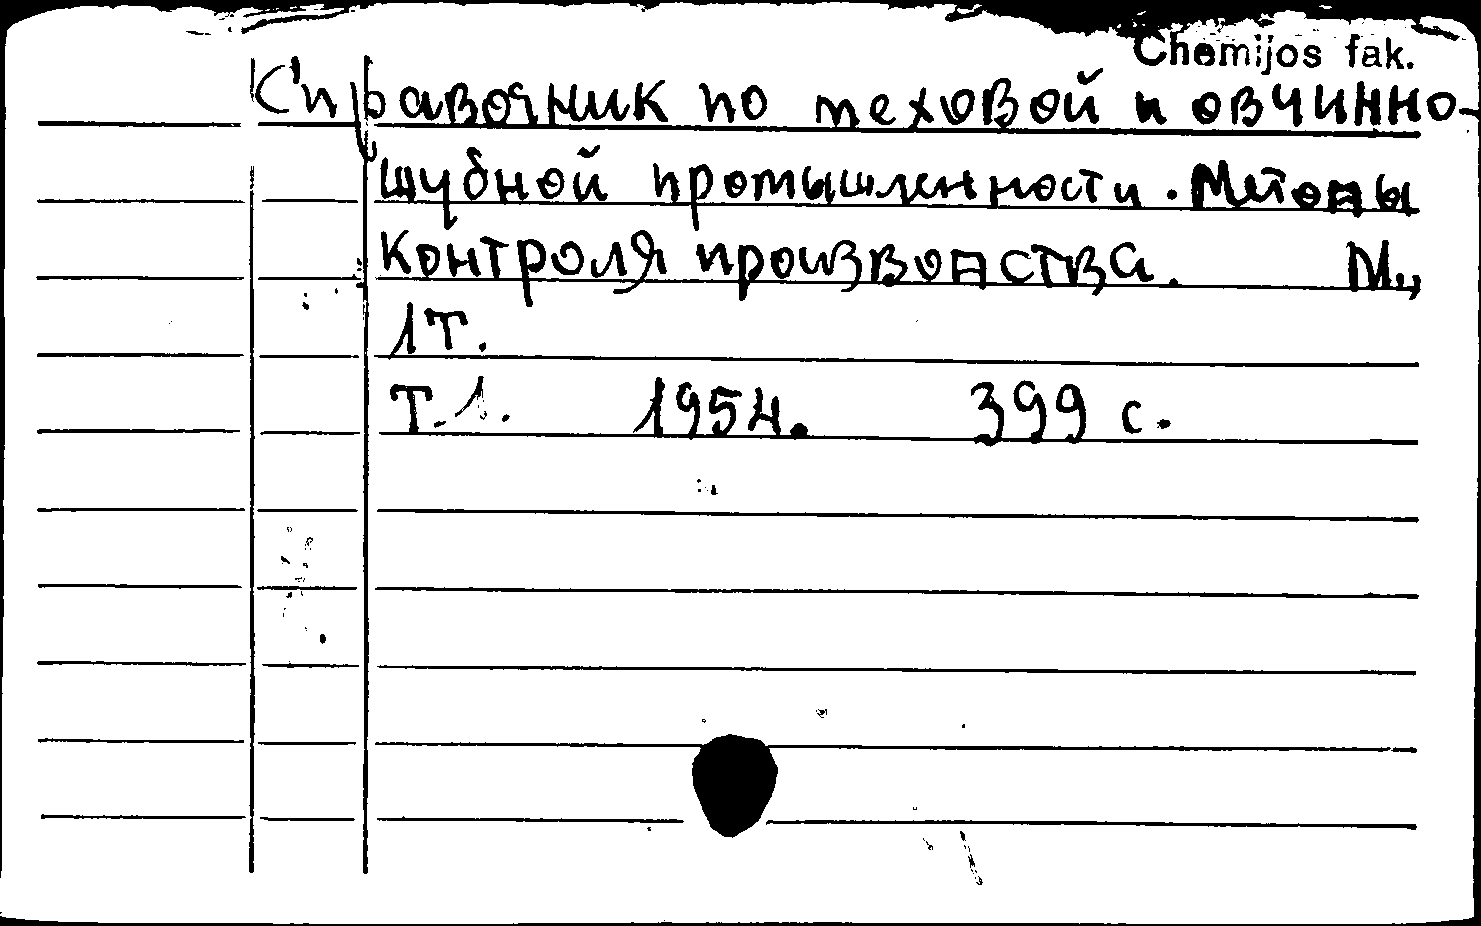 Chemijos fak.
Справочник по меховой и овчинно-
шубной промышленности. Методы
контроля производства. М.,
1т.
Т.1. 1954. 399 с.